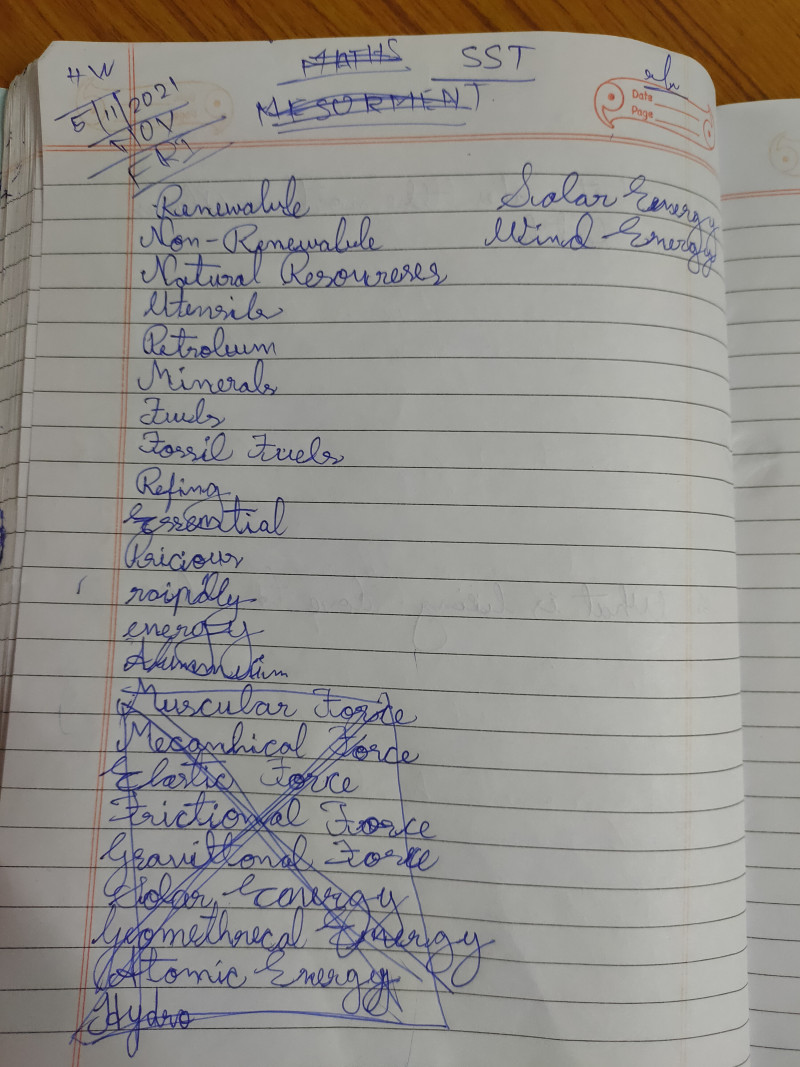 HW MATHS SST
5/11/2021 MESORMENT
Date
Page
Renewalule Solar Energy
Non-Renewalule Wind Energy
Natural Resoureses
Utensils
Petroleum
Minerals
Fuels
Fossil Fuels
Refing
Essential
Pricious
raipdly
energy
Muscular Force
Mecanhical Force
Elastic Force
Frictional Force
Gravittonal Force
Solar Energy
Geomethrecal Energy
Atomic Energy
Hydro